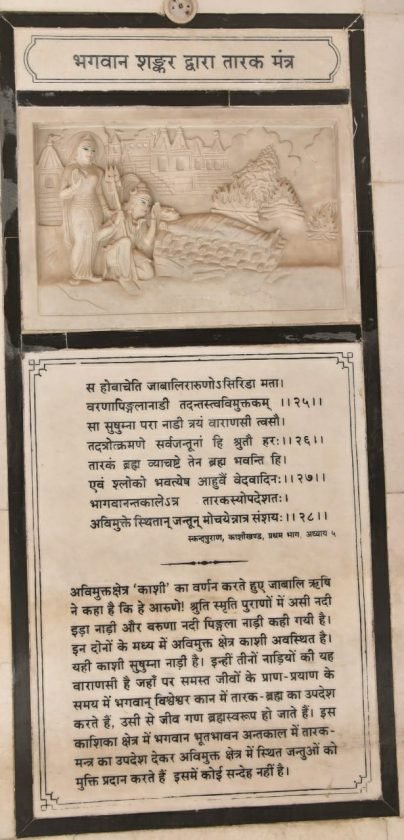 भगवान शङ्कर द्वारा तारक मंत्र
स होवाचेति जाबालिरारुणोऽसिरिडा मता।
वरणापिङ्गलानाडी तदन्तस्त्वविमुक्तकम् ।।२५।।
सा सुषुम्ना परा नाडी त्रयं वाराणसी त्वसौ।
तदत्रोत्क्रमणे सर्वजन्तूनां हि श्रुतौ हरः।।२६।।
तारकं ब्रह्म व्याचष्टे तेन ब्रह्म भवन्ति हि।
एवं श्लोको भवत्येष आहुर्वै वेदवादिनः।।२७।।
भागवानन्तकालेऽत्र तारकस्योपदेशतः।
अविमुक्ते स्थितान् जन्तून् मोचयेन्नात्र संशयः।।२८।।
स्कन्दपुराण, काशीखण्ड, प्रथम भाग, अध्याय ५
अविमुक्तक्षेत्र 'काशी' का वर्णन करते हुए जाबालि ऋषि
ने कहा है कि हे आरुणे! श्रुति स्मृति पुराणों में असी नदी
इड़ा नाड़ी और वरुणा नदी पिङ्गला नाड़ी कही गयी है।
इन दोनों के मध्य में अविमुक्त क्षेत्र काशी अवस्थित है।
यही काशी सुषुम्ना नाड़ी है। इन्हीं तीनों नाड़ियों की यह
वाराणसी है जहाँ पर समस्त जीवों के प्राण-प्रयाण के
समय में भगवान् विश्वेश्वर कान में तारक-ब्रह्म का उपदेश
करते हैं, उसी से जीव गण ब्रह्मस्वरूप हो जाते हैं। इस
काशिका क्षेत्र में भगवान भूतभावन अन्तकाल में तारक-
मन्त्र का उपदेश देकर अविमुक्त क्षेत्र में स्थित जन्तुओं को
मुक्ति प्रदान करते हैं इसमें कोई सन्देह नहीं है।